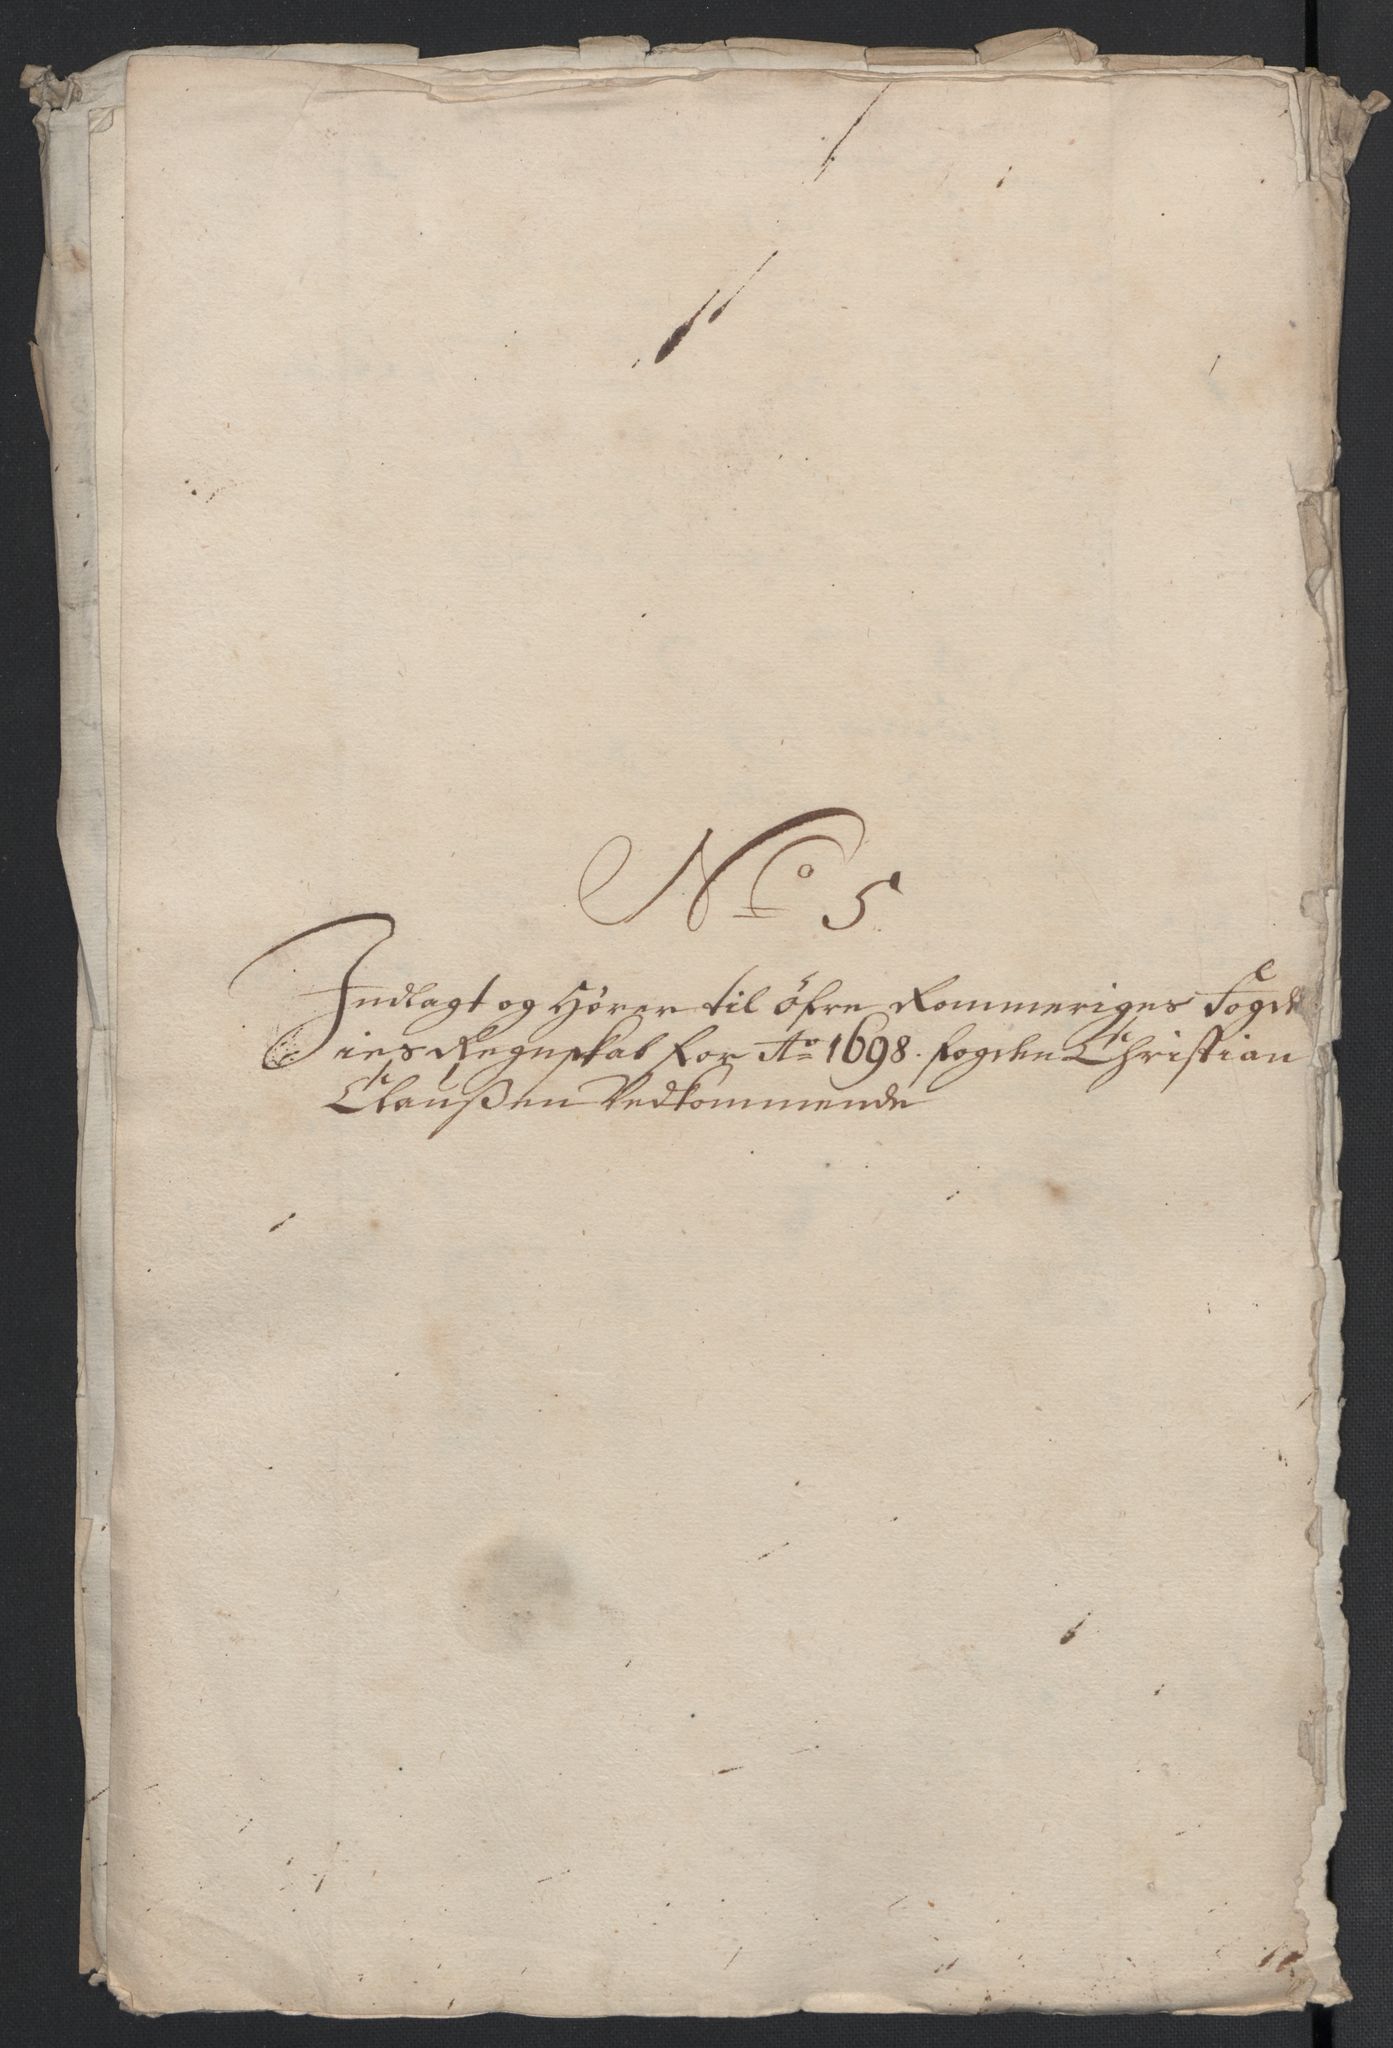 No 5
Indlagt og Hörer til Öfre Rommeriges Fogde
ies Regnskab for Ao 1698. fogden Christian
Claußen Vedkommende